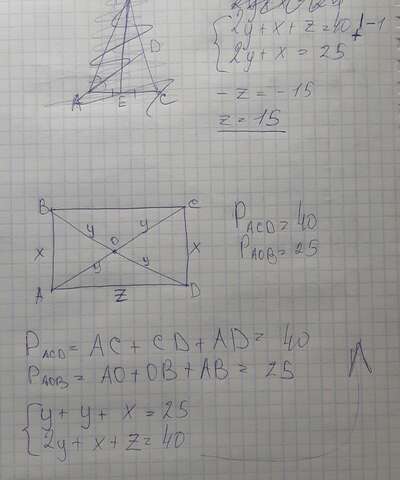 2y + x + z = 40 | -1
2y + x = 25
- z = - 15
z = 15
D
A E C
B C
y y
O
x x
y y
A D
z
P ACD = 40
P AOB = 25
P ACD = AC + CD + AD = 40
P AOB = AO + OB + AB = 25
y + y + x = 25
2y + x + z = 40